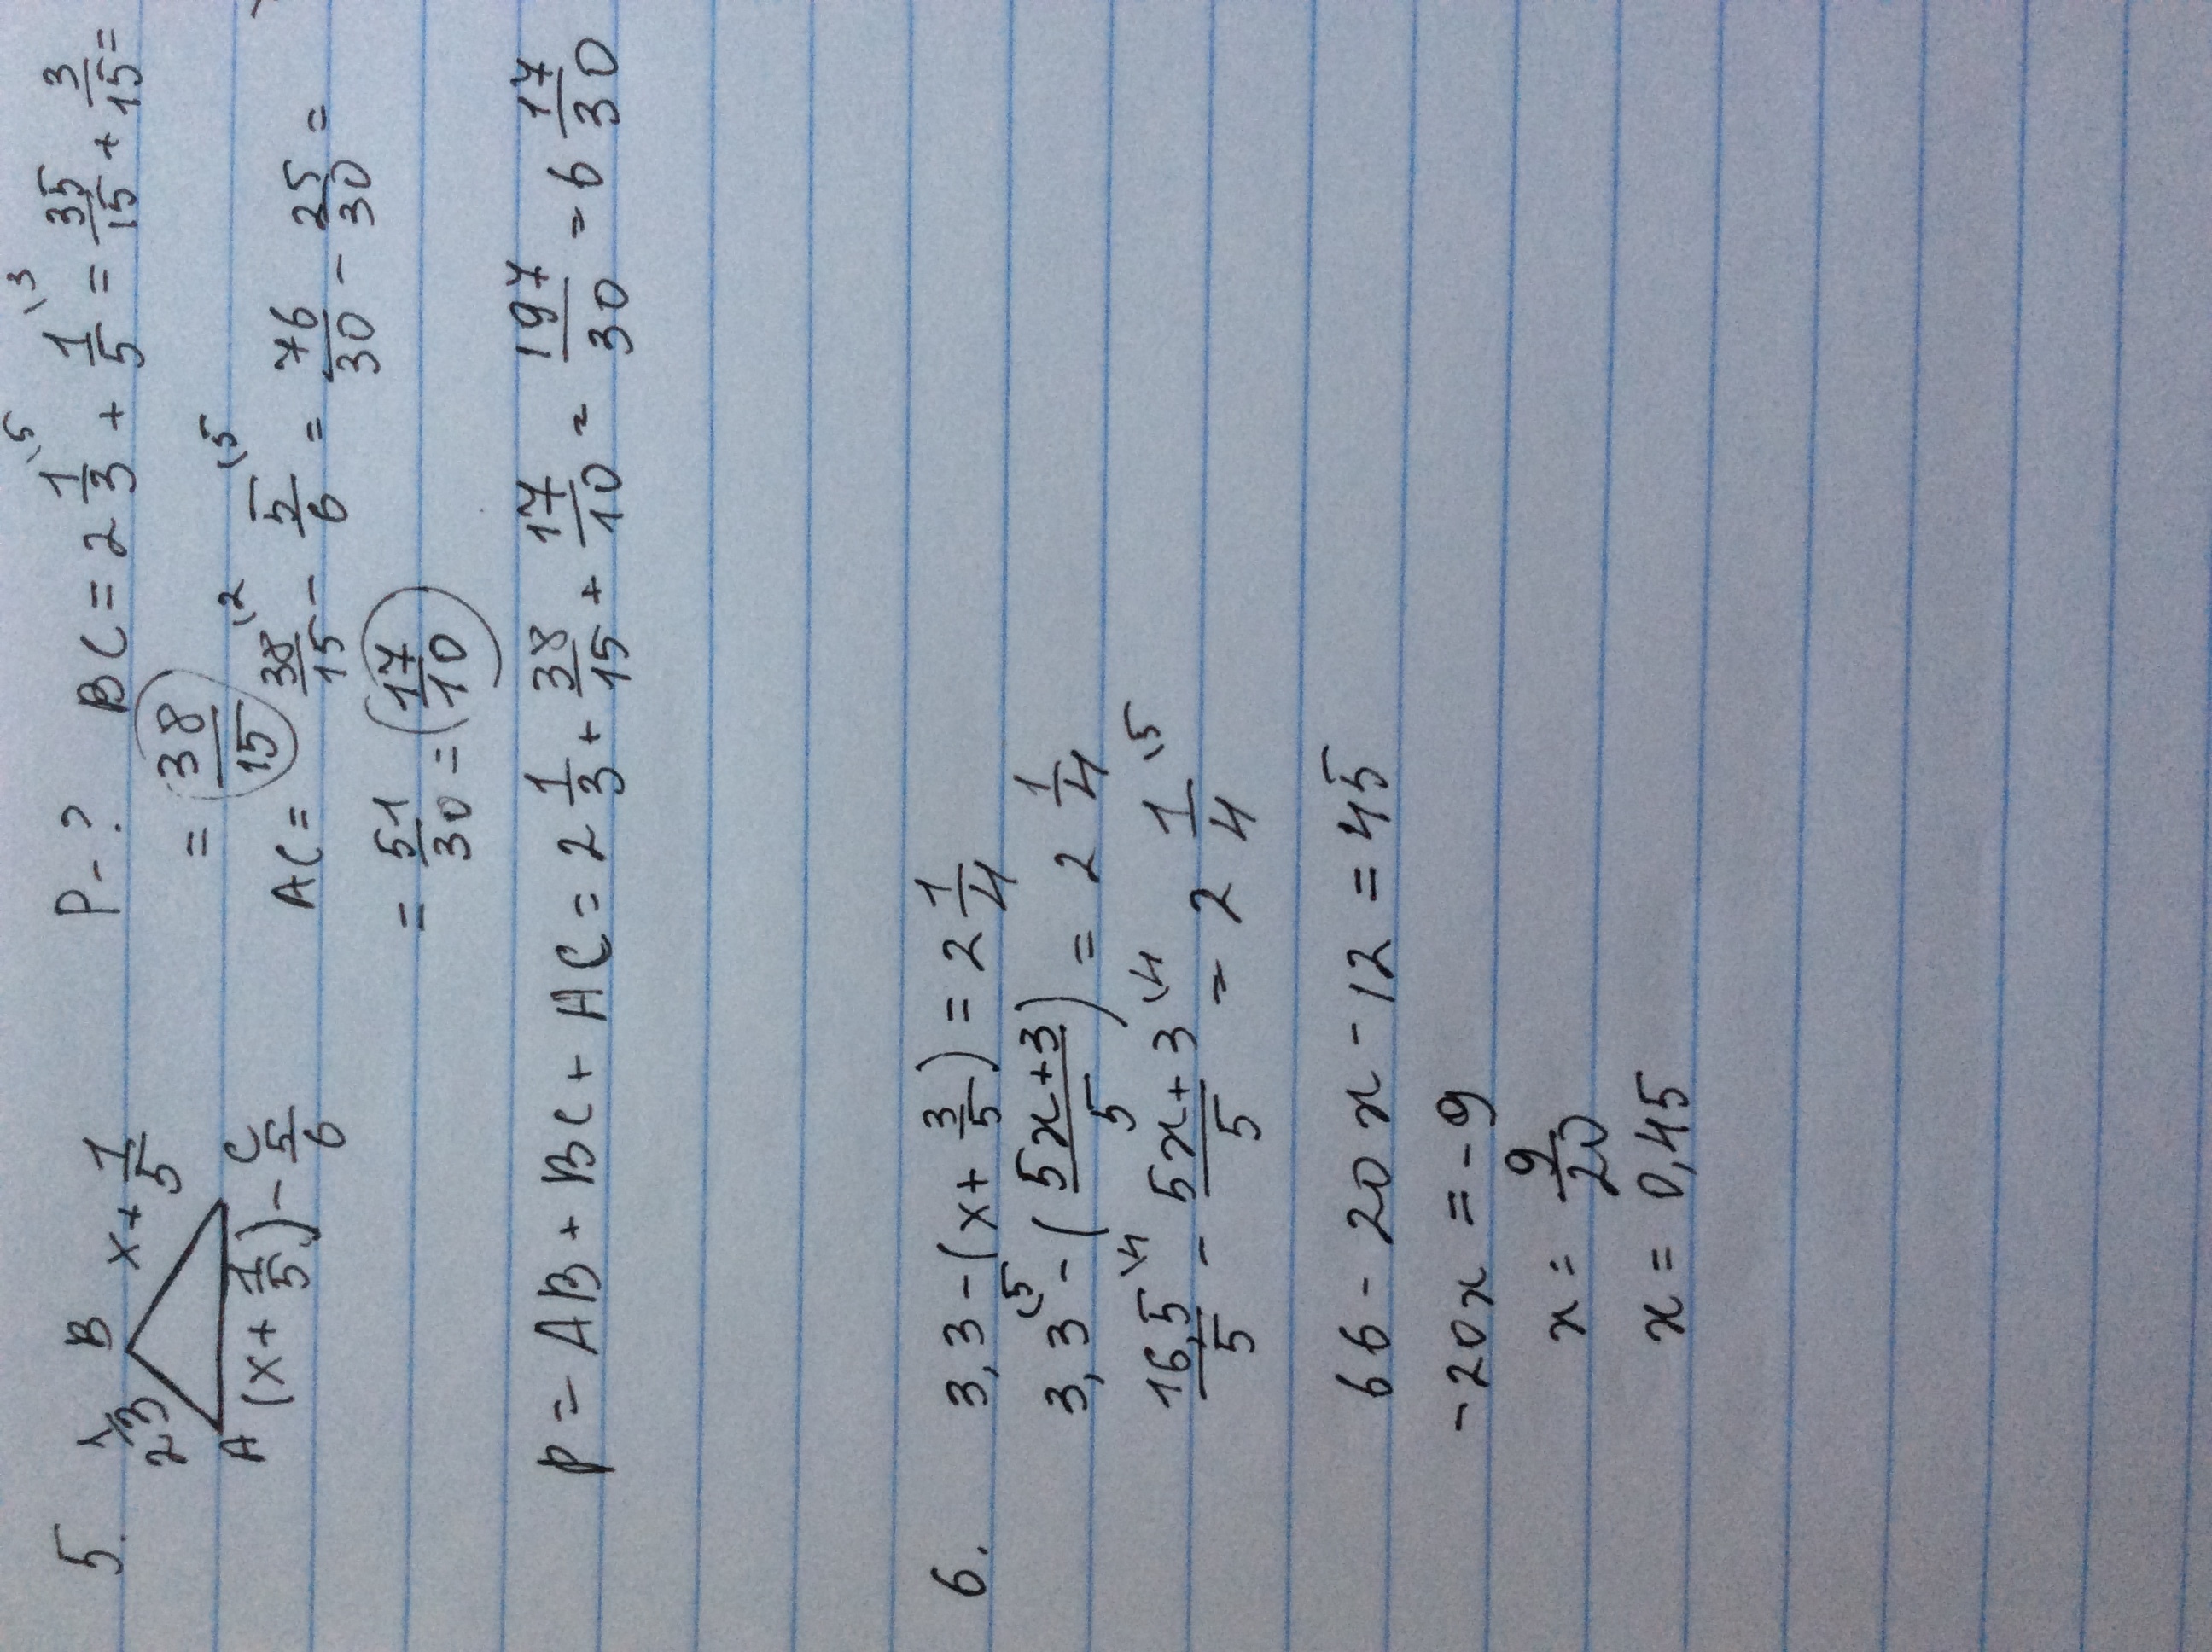 5. P-? BC = 2 1/3 \5 + 1/5 \3 = 35/15 + 3/15 =
= 38/15
2 1/3 B x + 1/5
A (x + 1/5) - 5/6 C
AC = 38/15 \2 - 5/6 \5 = 76/30 - 25/30 =
= 51/30 = 17/10
P = AB + BC + AC = 2 1/3 + 38/15 + 17/10 = 197/30 = 6 17/30
6. 3,3 - (x + 3/5) = 2 1/4
3,3 \5 - (5x+3/5) = 2 1/4
16,5/5 \4 - 5x+3/5 \4 = 2 1/4 \5
66 - 20x - 12 = 45
-20x = -9
x = 9/20
x = 0,45